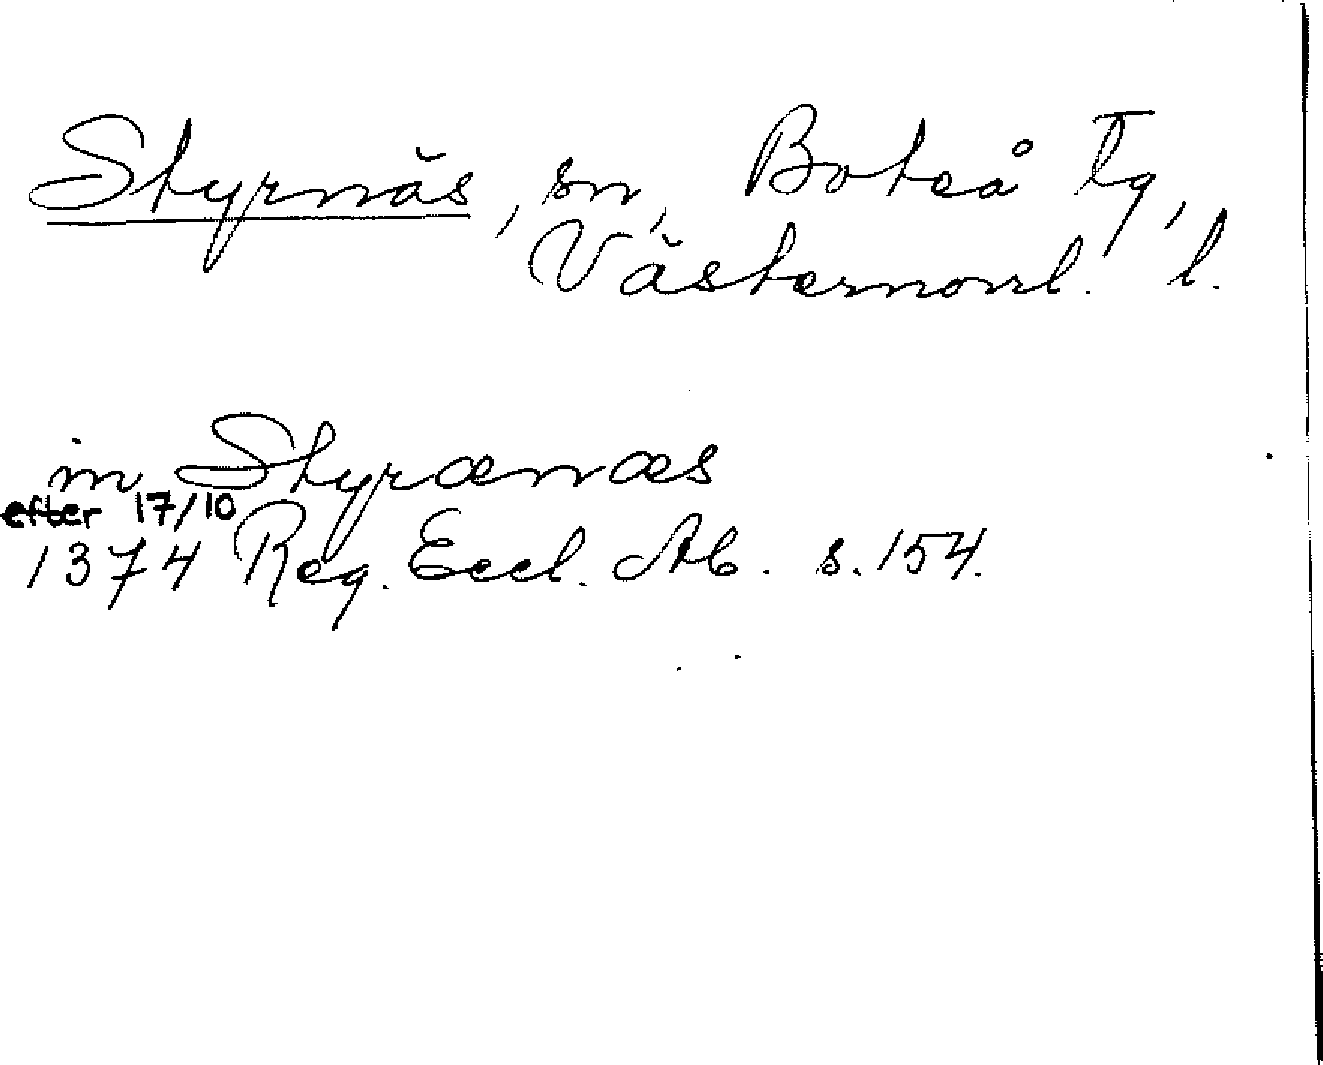 Styrnäs, sn, Boteå tg,
Västernorrl. l.
in Styrænæs
efter 17/10
1374 Reg. Eccl. Ab. s. 154.